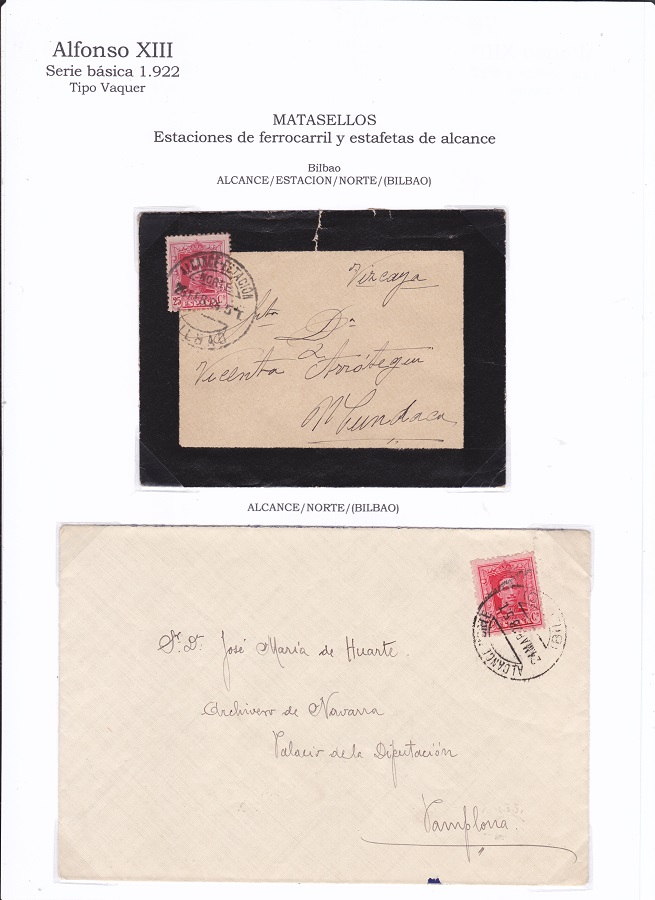 Alfonso XIII
Serie básica 1.922
Tipo Vaquer
MATASELLOS
Estaciones de ferrocarril y estafetas de alcance
Bilbao
ALCANCE/ESTACION/NORTE/(BILBAO)
ALCANCE ESTACION
NORTE
25
Vizcaya
Dª
Vicenta Arrótegui
Mundaca
ALCANCE/NORTE/(BILBAO)
ALCANCE
Sr. D. José María de Huarte.
Archivero de Navarra
Palacio de la Diputación
Pamplona.